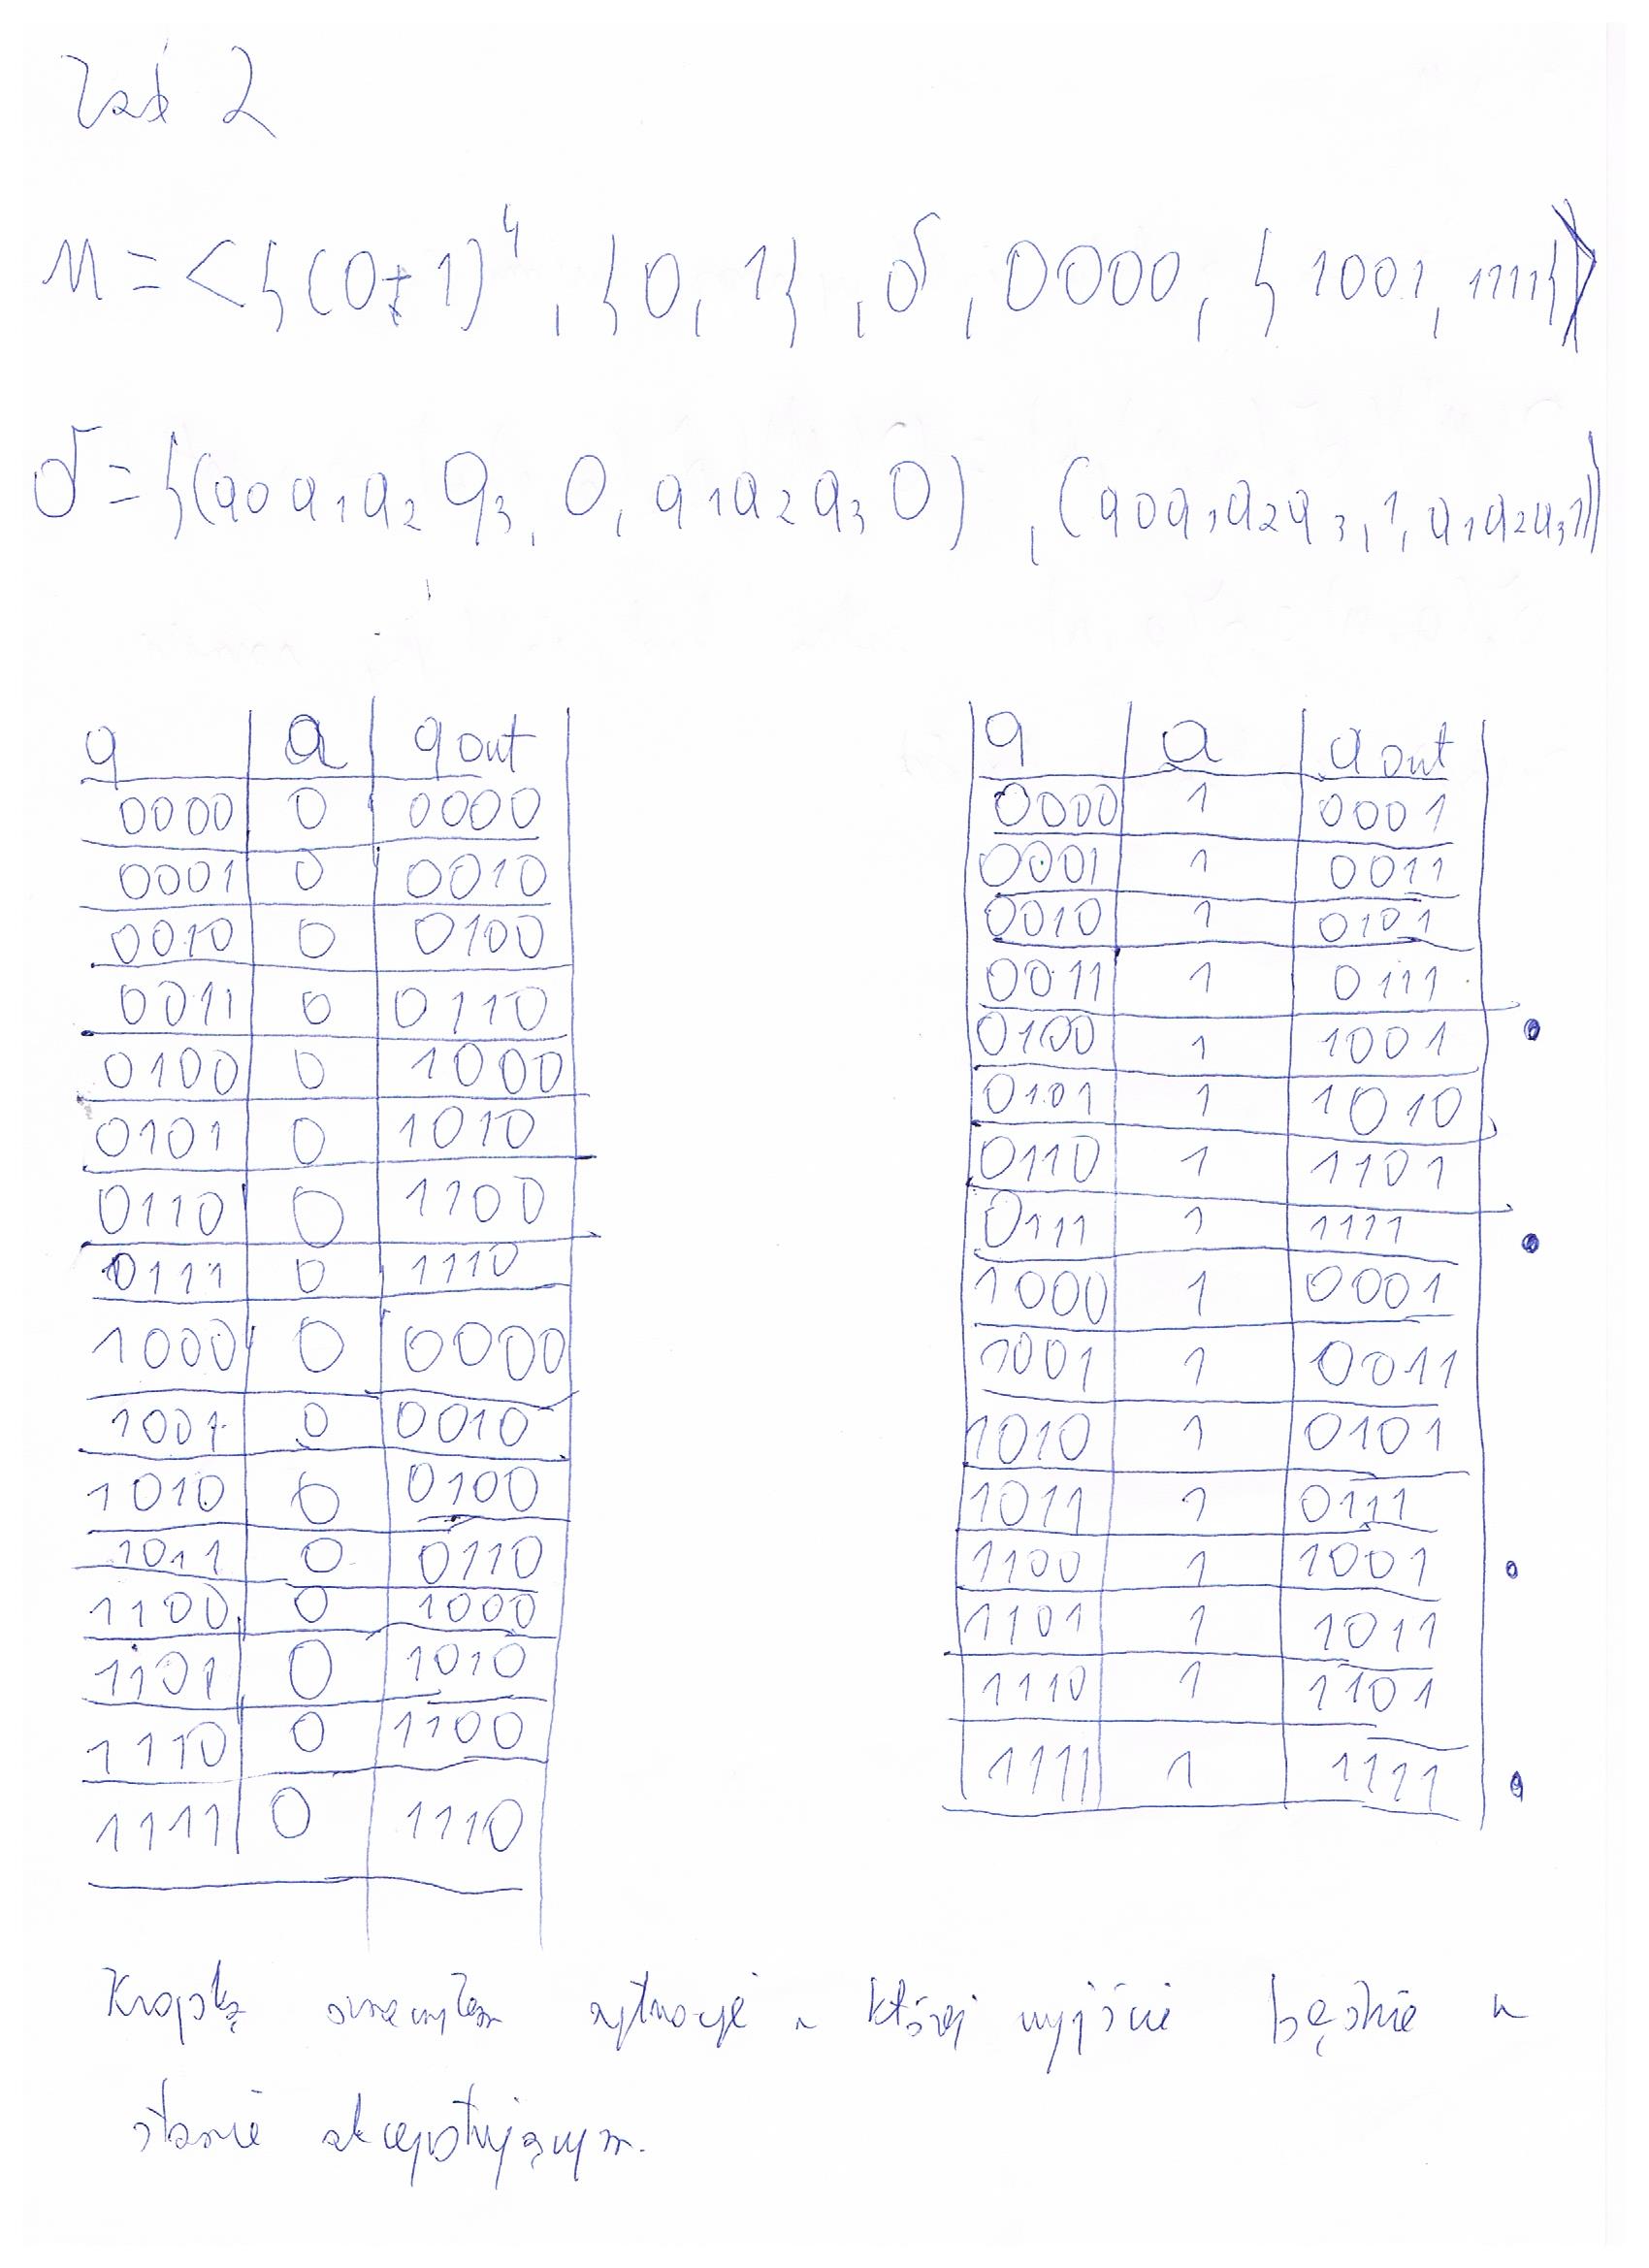 Zad 2
M = <{(0+1)^4, {0, 1}, δ, 0000, {1001, 1111}>
δ = {(q0 q1 q2 q3, 0, q1 q2 q3 0), (q0 q1 q2 q3, 1, q1 q2 q3 1)}
q a q out
0000 0 0000
0001 0 0010
0010 0 0100
0011 0 0110
0100 0 1000
0101 0 1010
0110 0 1100
0111 0 1110
1000 0 0000
1001 0 0010
1010 0 0100
1011 0 0110
1100 0 1000
1101 0 1010
1110 0 1100
1111 0 1110
q a q out
0000 1 0001
0001 1 0011
0010 1 0101
0011 1 0111
0100 1 1001 •
0101 1 1010
0110 1 1101
0111 1 1111 •
1000 1 0001
1001 1 0011
1010 1 0101
1011 1 0111
1100 1 1001 •
1101 1 1011
1110 1 1101
1111 1 1111 •
Kropką oznaczyłem sytuację w której wyjście będzie w
stanie akceptującym.